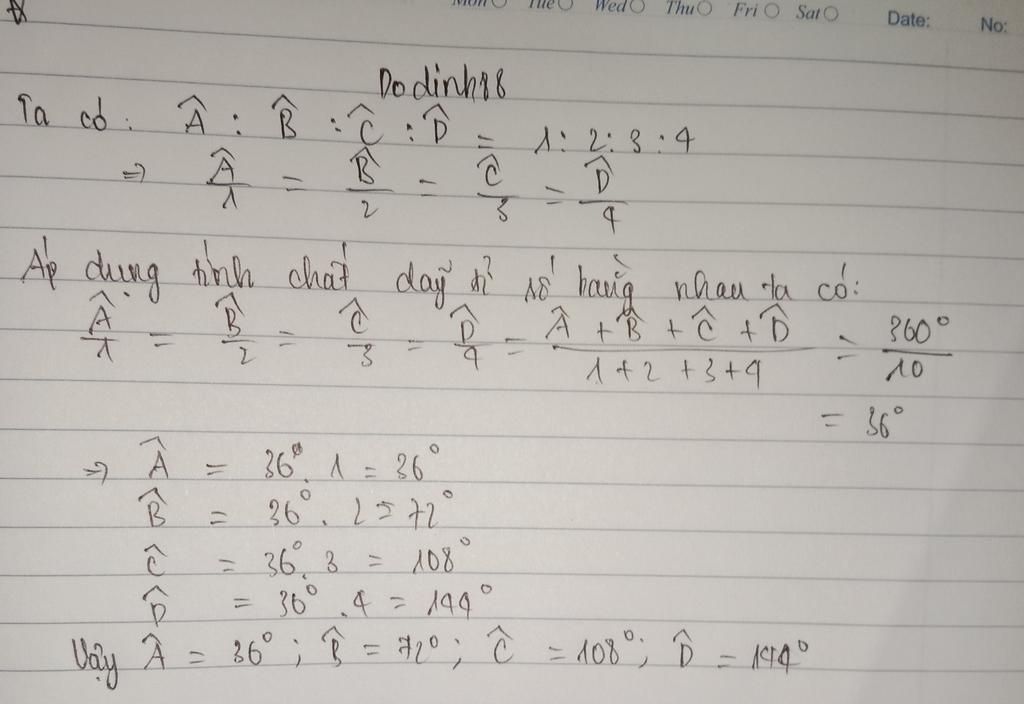 Mon Tue Wed Thu Fri Sat Date: No:
Dodinh88
Ta có: Â : B̂ : Ĉ : D̂ = 1 : 2 : 3 : 4
⇒ Â/1 = B̂/2 = Ĉ/3 = D̂/4
Áp dụng tính chất dãy tỉ số bằng nhau ta có:
Â/1 = B̂/2 = Ĉ/3 = D̂/4 = (Â + B̂ + Ĉ + D̂)/(1 + 2 + 3 + 4) = 360°/10
= 36°
⇒ Â = 36° . 1 = 36°
B̂ = 36° . 2 = 72°
Ĉ = 36° . 3 = 108°
D̂ = 36° . 4 = 144°
Vậy Â = 36° ; B̂ = 72° ; Ĉ = 108° ; D̂ = 144°